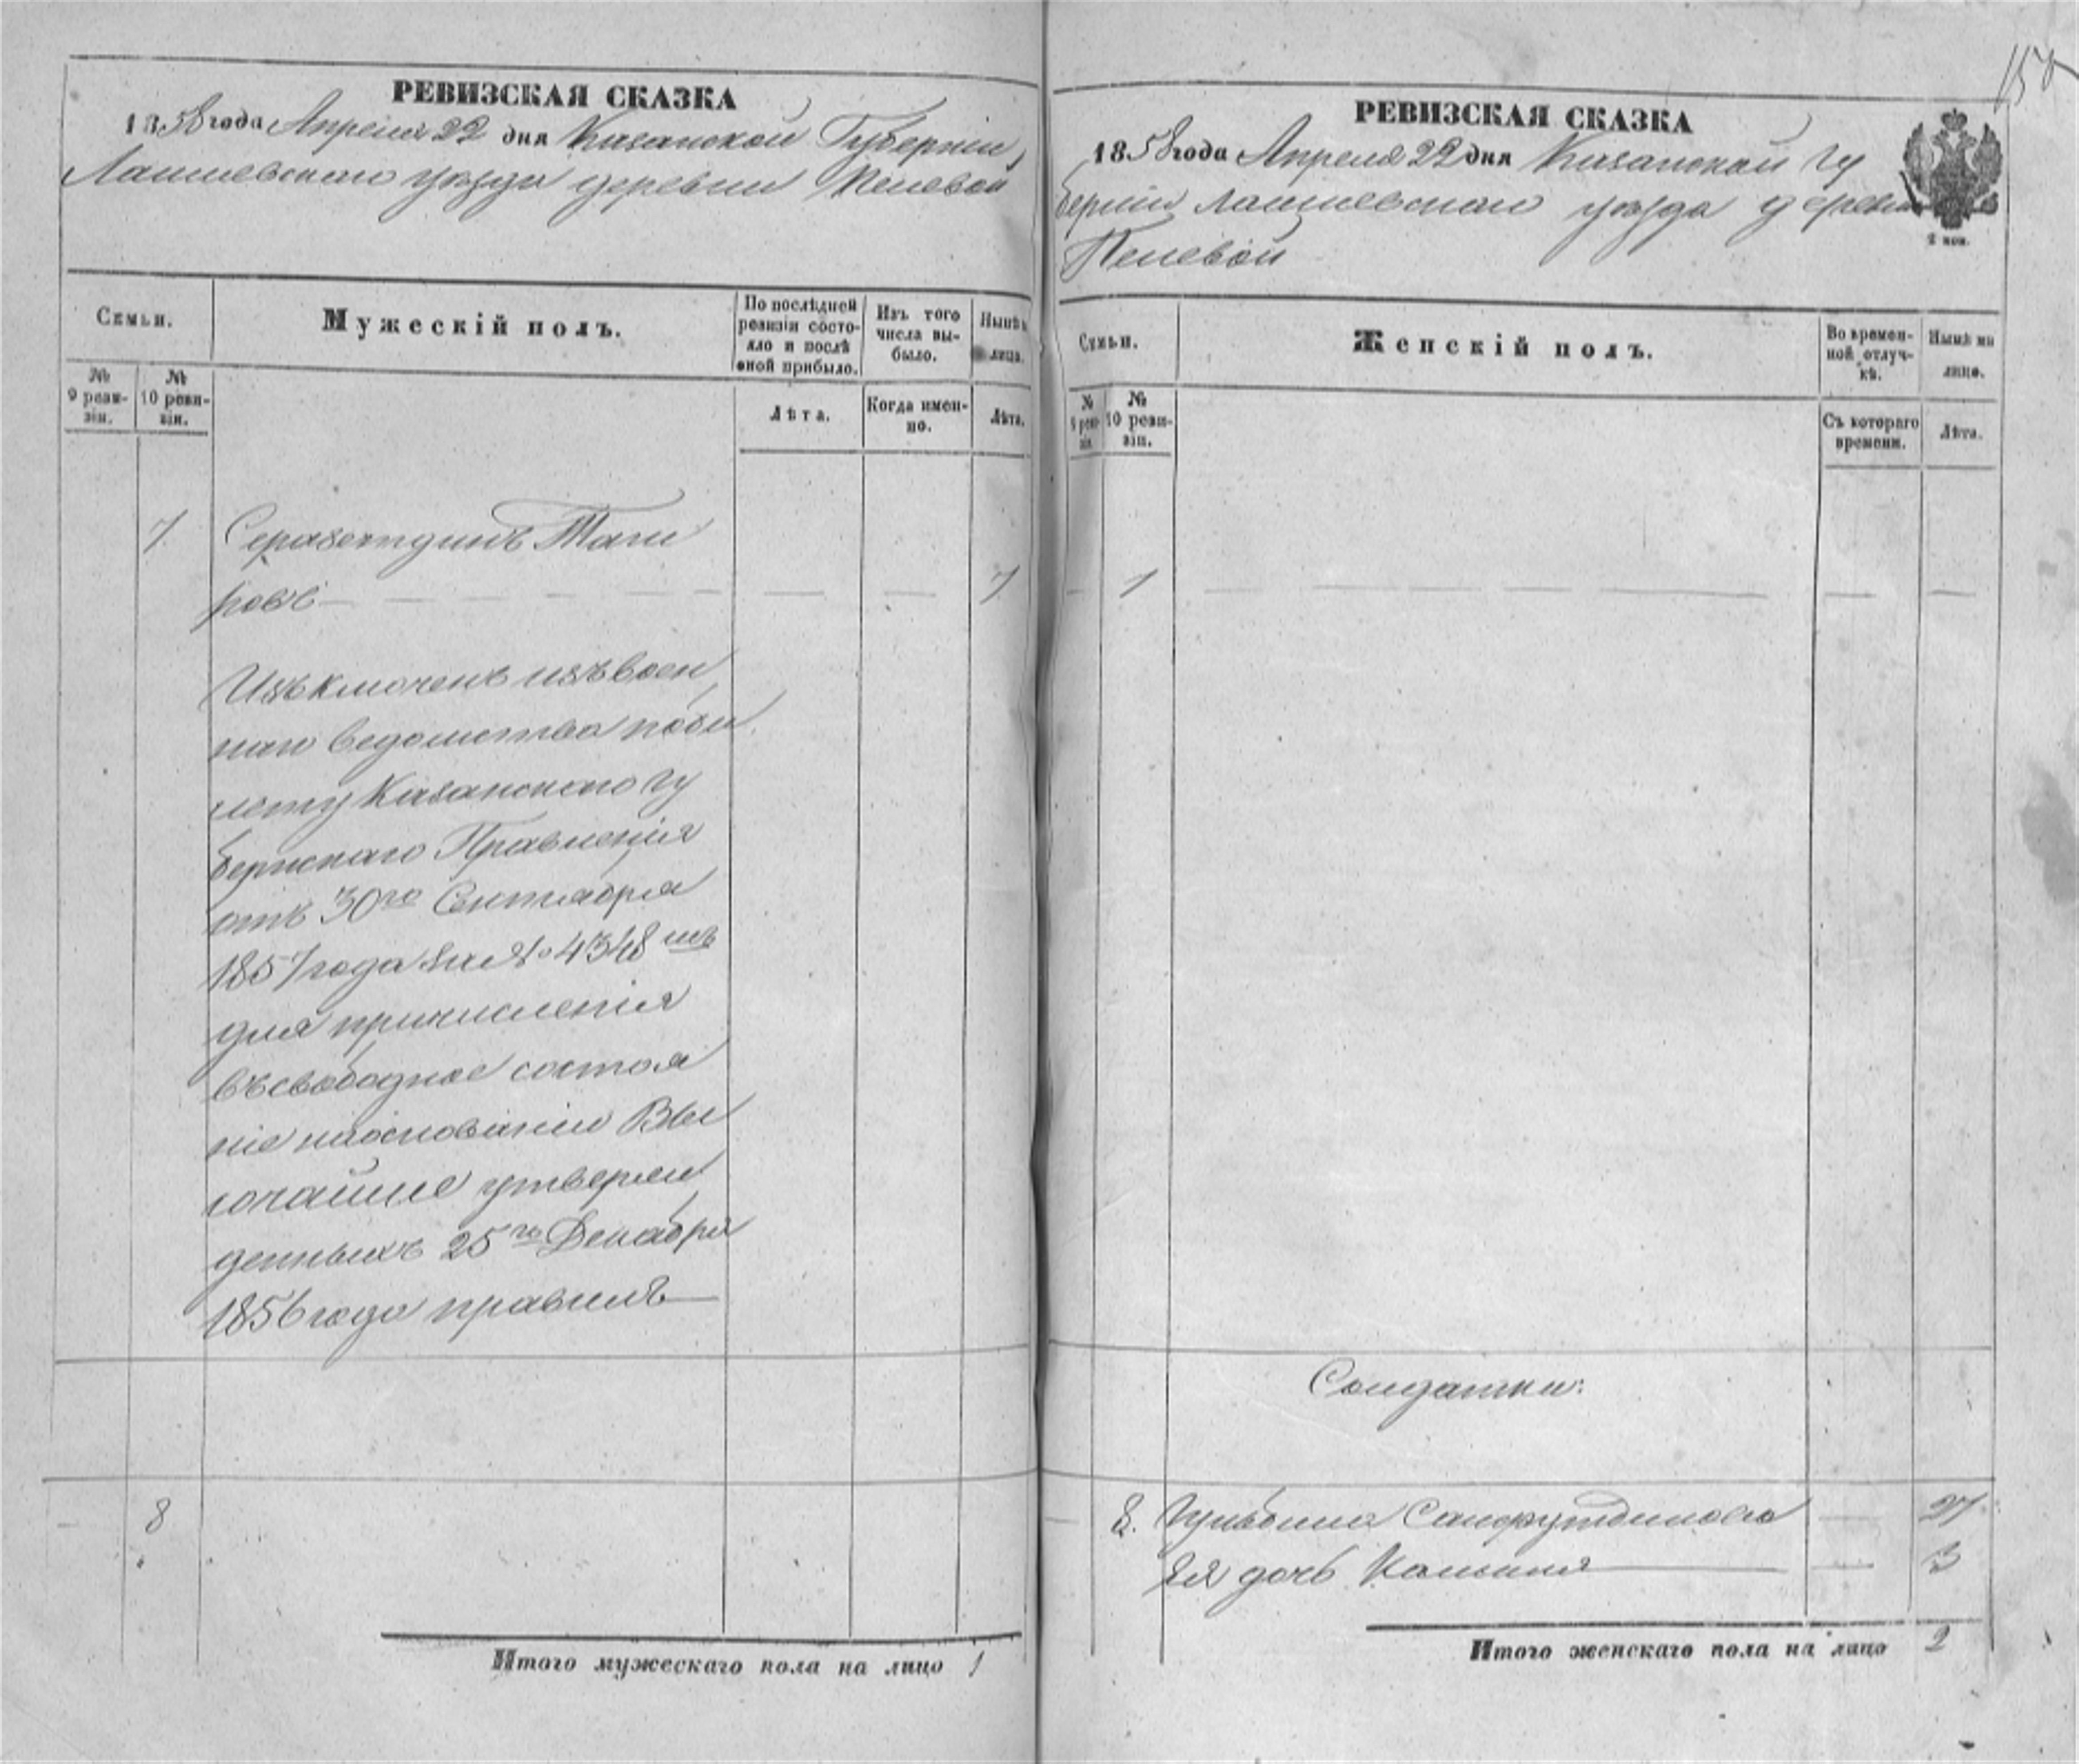 150
РЕВИЗСКАЯ СКАЗКА
1858 года Апреля 22 дня Казанской Губерніи
Лаишевскаго уѣзда деревни
Семьи.
Мужескій полъ.
По послѣдней ревизіи состояло и послѣ оной прибыло.
Изъ того числа выбыло.
Нынѣ на лицо.
№ 9 ревизіи.
№ 10 ревизіи.
Лѣта.
Когда именно.
Лѣта.
7 Серазетдинъ Таги
ровъ 7
Изъключенъ изъ воен
наго ведомства по би
лету Казанскаго Гу
бернскаго Правленія
отъ 30го Сентября
1857 года за № 4348 мъ
для причисленія
въ свободное состоя
ніе на основаніи Вы
сочайше утверж
денныхъ 25го Декабря
1856 года правилъ
8
Итого мужескаго пола на лицо 1
РЕВИЗСКАЯ СКАЗКА
1858 года Апреля 22 дня Казанской Гу
берніи Лаишевскаго уѣзда деревни
2 коп.
Семьи.
Женскій полъ.
Во временной отлучкѣ.
Нынѣ на лицо.
№ 9 ревизіи
№ 10 ревизіи.
Съ котораго времени.
Лѣта.
7
Солдатки:
8. Гульбика 27
Ея дочь 3
Итого женскаго пола на лицо 2